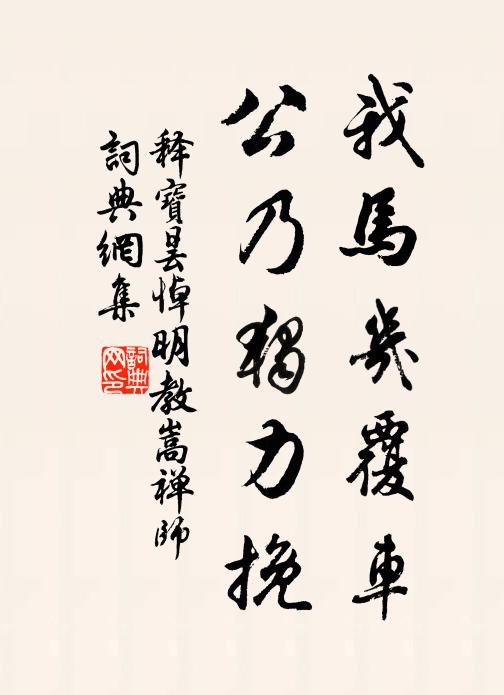 我馬幾覆車
公乃獨力挽
释寶曇悼明教嵩禅師
詞典網集
詞典网印